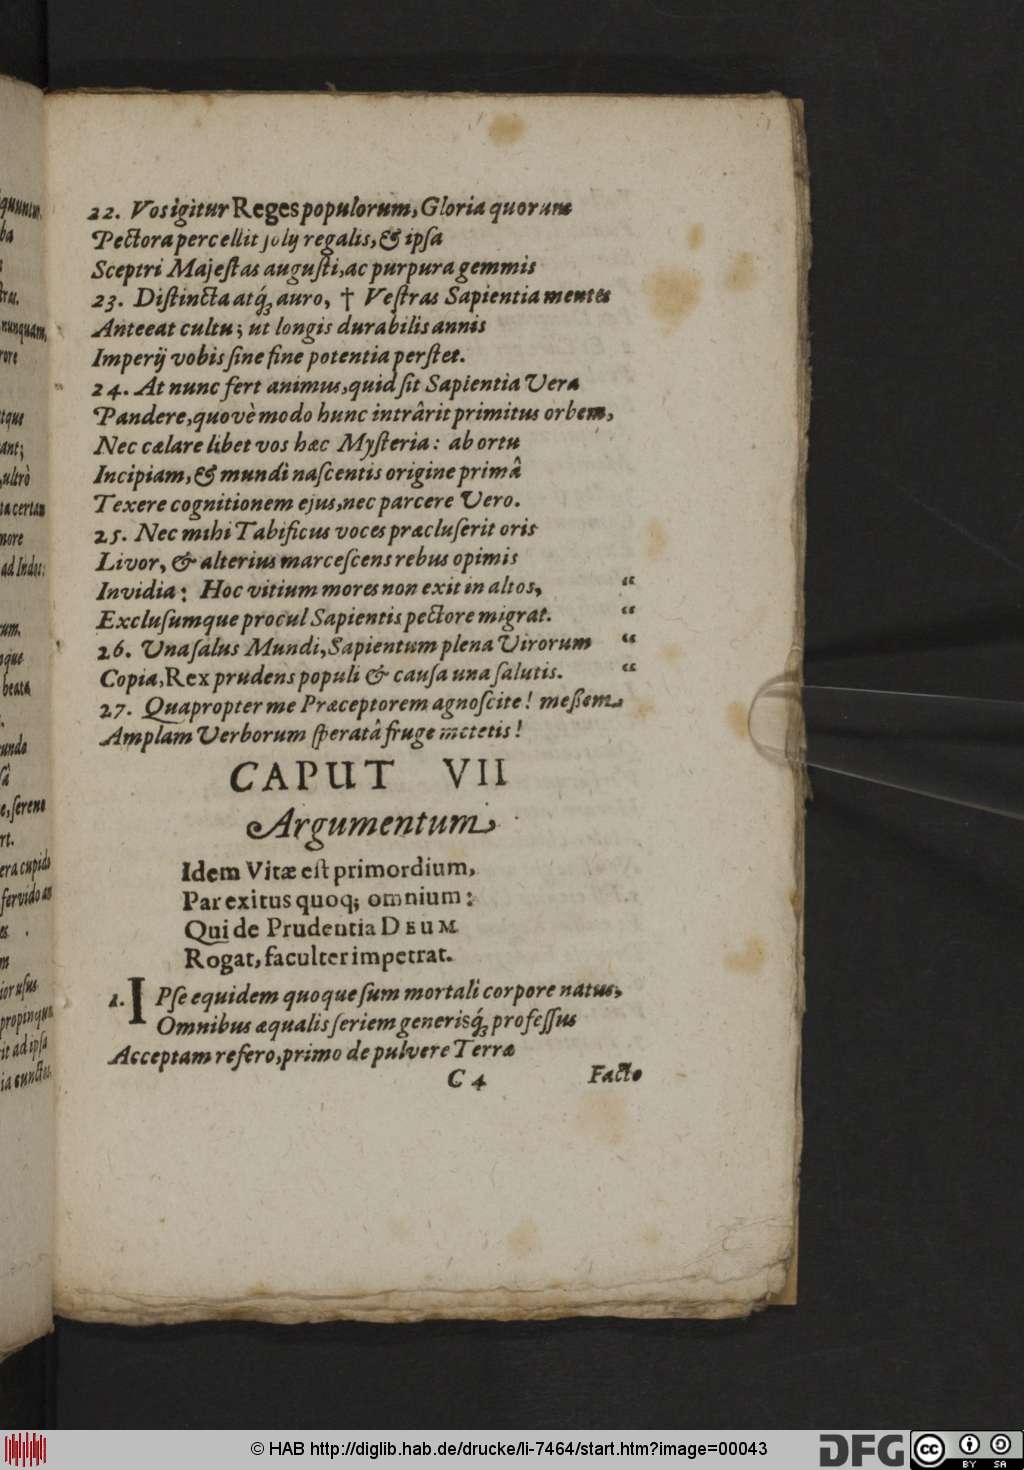 22. Vos igitur Reges populorum, Gloria quorum
Pectora percellit solij regalis, & ipſa
Sceptri Majeſtas auguſti, ac purpura gemmis
23. Diſtincta atq́ꝫ auro, † Veſtras Sapientia mentes
Anteeat cultu; ut longis durabilis annis
Imperij vobis ſine fine potentia perſtet.
24. At nunc fert animus, quid ſit Sapientia Vera
Pandere, quovè modo hunc intrârit primitus orbem,
Nec cælare libet vos hæc Myſteria: ab ortu
Incipiam, & mundi naſcentis origine primâ
Texere cognitionem ejus, nec parcere Vero.
25. Nec mihi Tabificus voces præcluſerit oris
Livor, & alterius marceſcens rebus opimis
Invidia: Hoc vitium mores non exit in altos, “
Excluſumque procul Sapientis pectore migrat. “
26. Una ſalus Mundi, Sapientum plena Virorum “
Copia, Rex prudens populi & cauſa una ſalutis. “
27. Quapropter me Præceptorem agnoſcite! meßem
Amplam Verborum ſperatâ fruge metetis!
CAPUT VII
Argumentum
Idem Vitæ eſt primordium,
Par exitus quoq; omnium:
Qui de Prudentia DEUM
Rogat, faculter impetrat.
1. IPſe equidem quoque ſum mortali corpore natus,
Omnibus æqualis ſeriem generisq́ꝫ profeſſus
Acceptam refero, primo de pulvere Terræ
C 4 Facto
© HAB http://diglib.hab.de/drucke/li-7464/start.htm?image=00043
DFG
cc BY SA